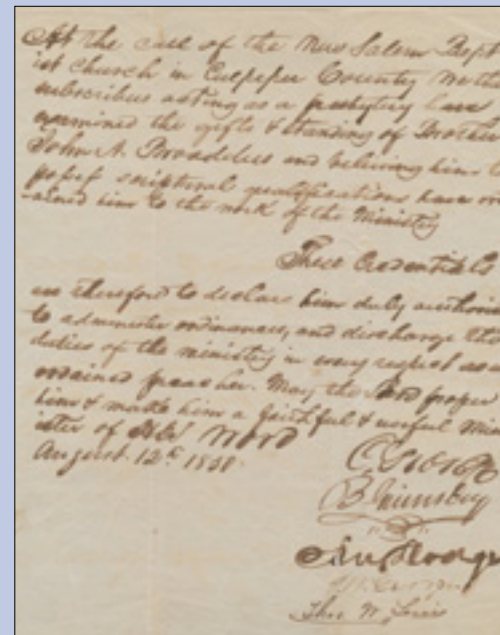 At the call of the New Salem Bapt
ist church in Culpeper County we the
subscribers acting as a presbytery have
examined the gifts & standing of Brother
John A. Broaddus and believing him
possess scriptural qualifications have or
ained him to the work of the Ministry
These Credentials
are therefore to declare him duly authori
to administer ordinances, and discharge the
duties of the ministry in every respect as a
ordained preacher. May the Lord prosper
him & make him a faithful & useful Min
ister of His Word
August 12
C George
B Grimsley
Thos W. Lewis